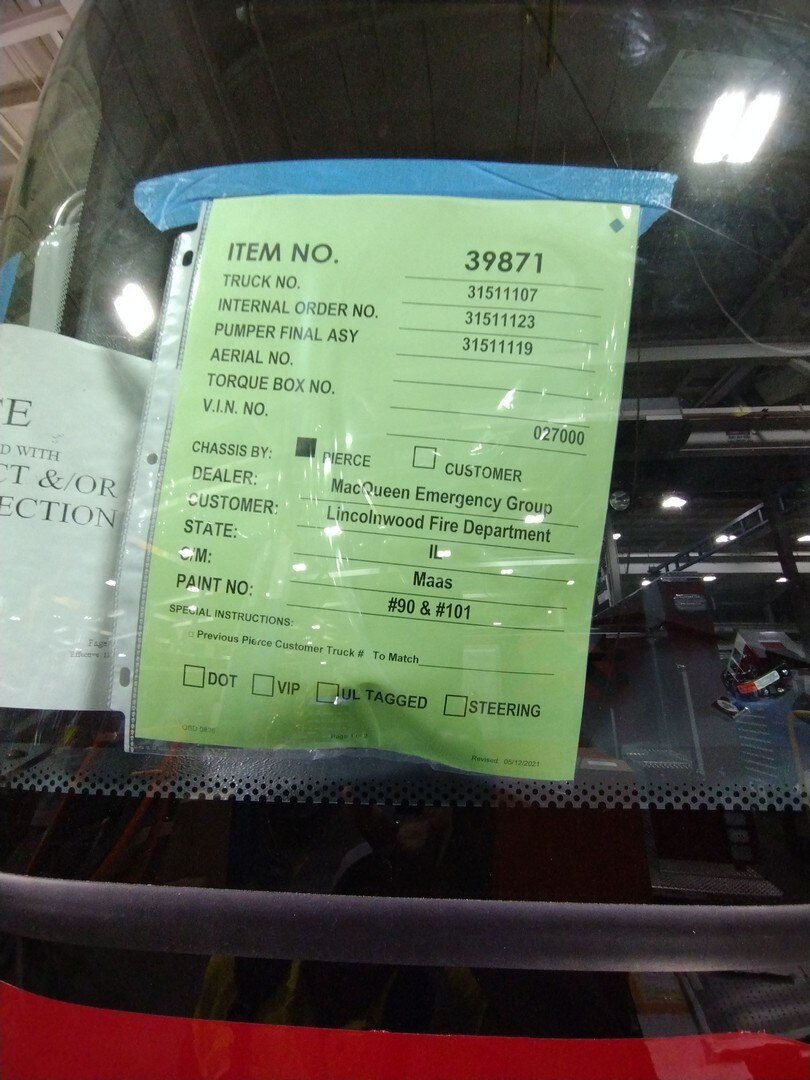 ITEM NO. 39871
TRUCK NO. 31511107
INTERNAL ORDER NO. 31511123
PUMPER FINAL ASY 31511119
AERIAL NO.
TORQUE BOX NO.
V.I.N. NO. 027000
CHASSIS BY: PIERCE CUSTOMER
DEALER: MacQueen Emergency Group
CUSTOMER: Lincolnwood Fire Department
STATE: IL
C/M: Maas
PAINT NO: #90 & #101
SPECIAL INSTRUCTIONS:
Previous Pierce Customer Truck # To Match
DOT VIP UL TAGGED STEERING
Page 1 of 2
Revised: 05/12/2021
CE
D WITH
CT &/OR
ECTION
Page
Effective